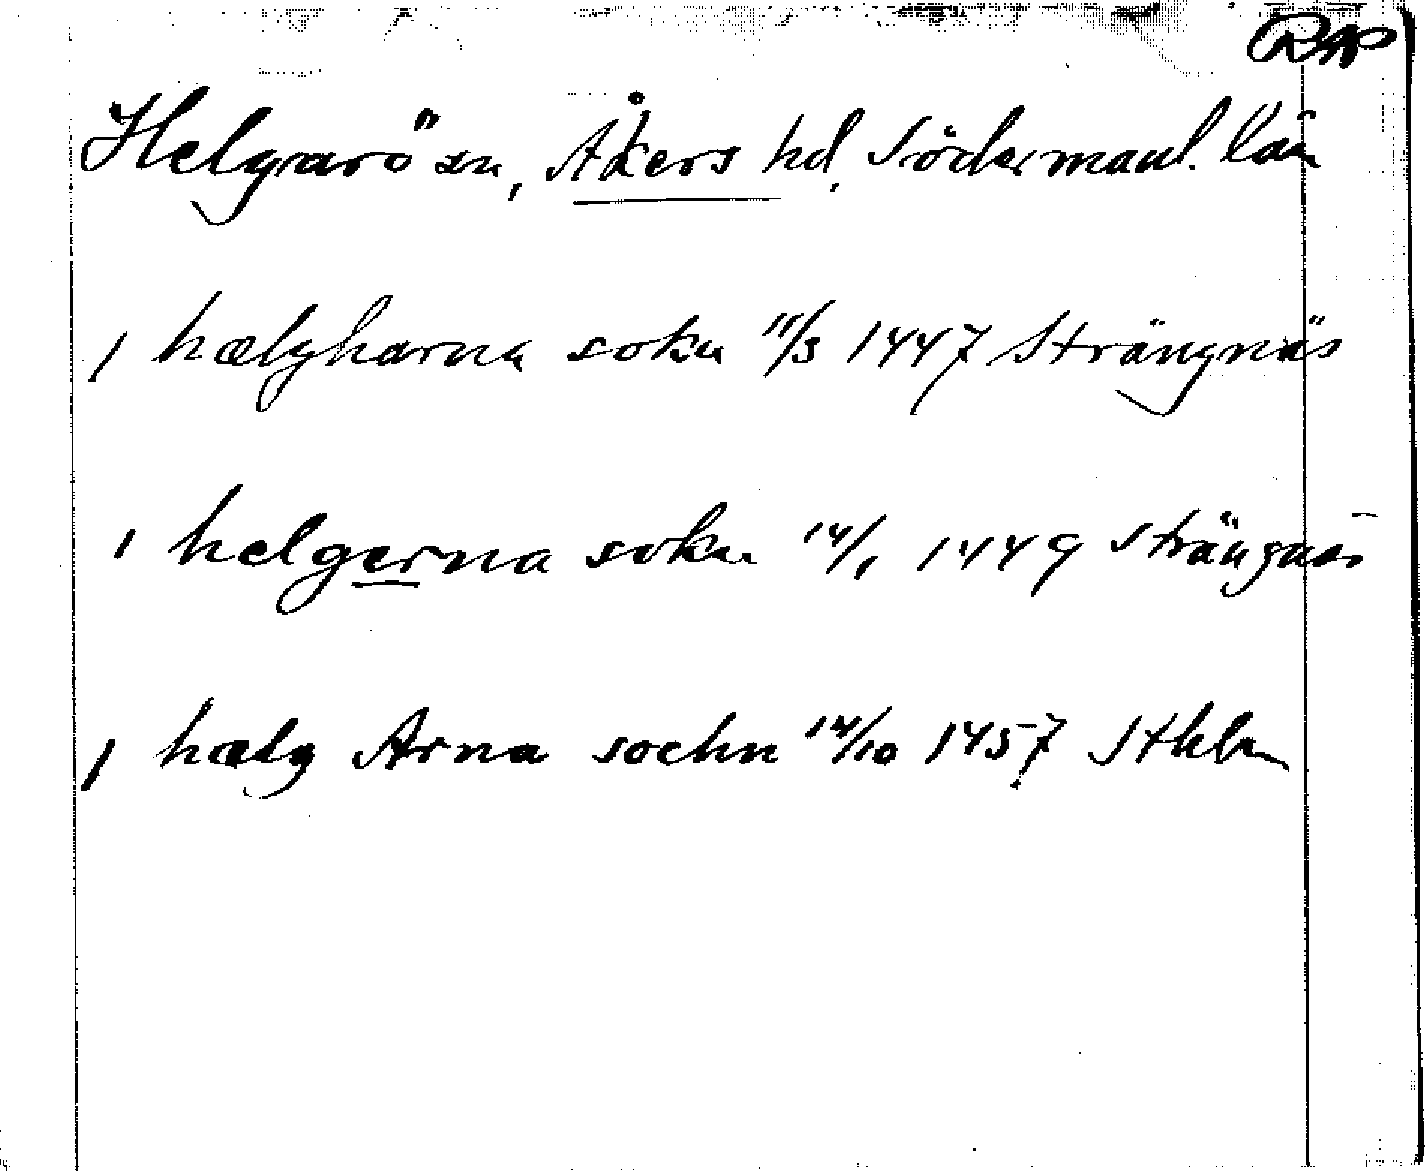 RAP
Helgarö sn, Åkers hd, Södermanl. län
i hælgharna sokn 11/3 1447 Strängnäs
i helgerna sokn 14/1 1449 Strängnäs
i hælg Arna sochn 14/10 1457 Sthlm